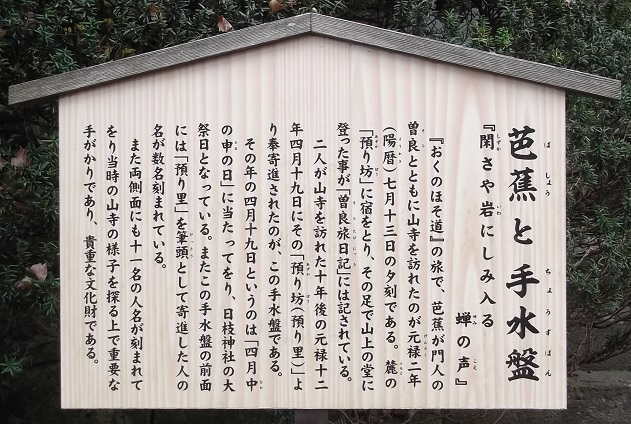 芭蕉と手水盤
『閑さや岩にしみ入る
蝉の声』
『おくのほそ道』の旅で、芭蕉が門人の
曽良とともに山寺を訪れたのが元禄二年
(陽暦)七月十三日の夕刻である。麓の
「預り坊」に宿をとり、その足で山上の堂に
登った事が「曽良旅日記」には記されている。
二人が山寺を訪れた十年後の元禄十二
年四月十九日にその「預り坊(預り里)」よ
り奉寄進されたのが、この手水盤である。
その年の四月十九日というのは「四月中
の申の日」に当たってをり、日枝神社の大
祭日となっている。またこの手水盤の前面
には「預り里」を筆頭として寄進した人の
名が数名刻まれている。
また両側面にも十一名の人名が刻まれて
をり当時の山寺の様子を探る上で重要な
手がかりであり、貴重な文化財である。